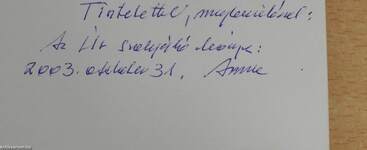 Tisztelettel, megbecsüléssel:
Az Úr szolgáló leánya:
2003. október 31.